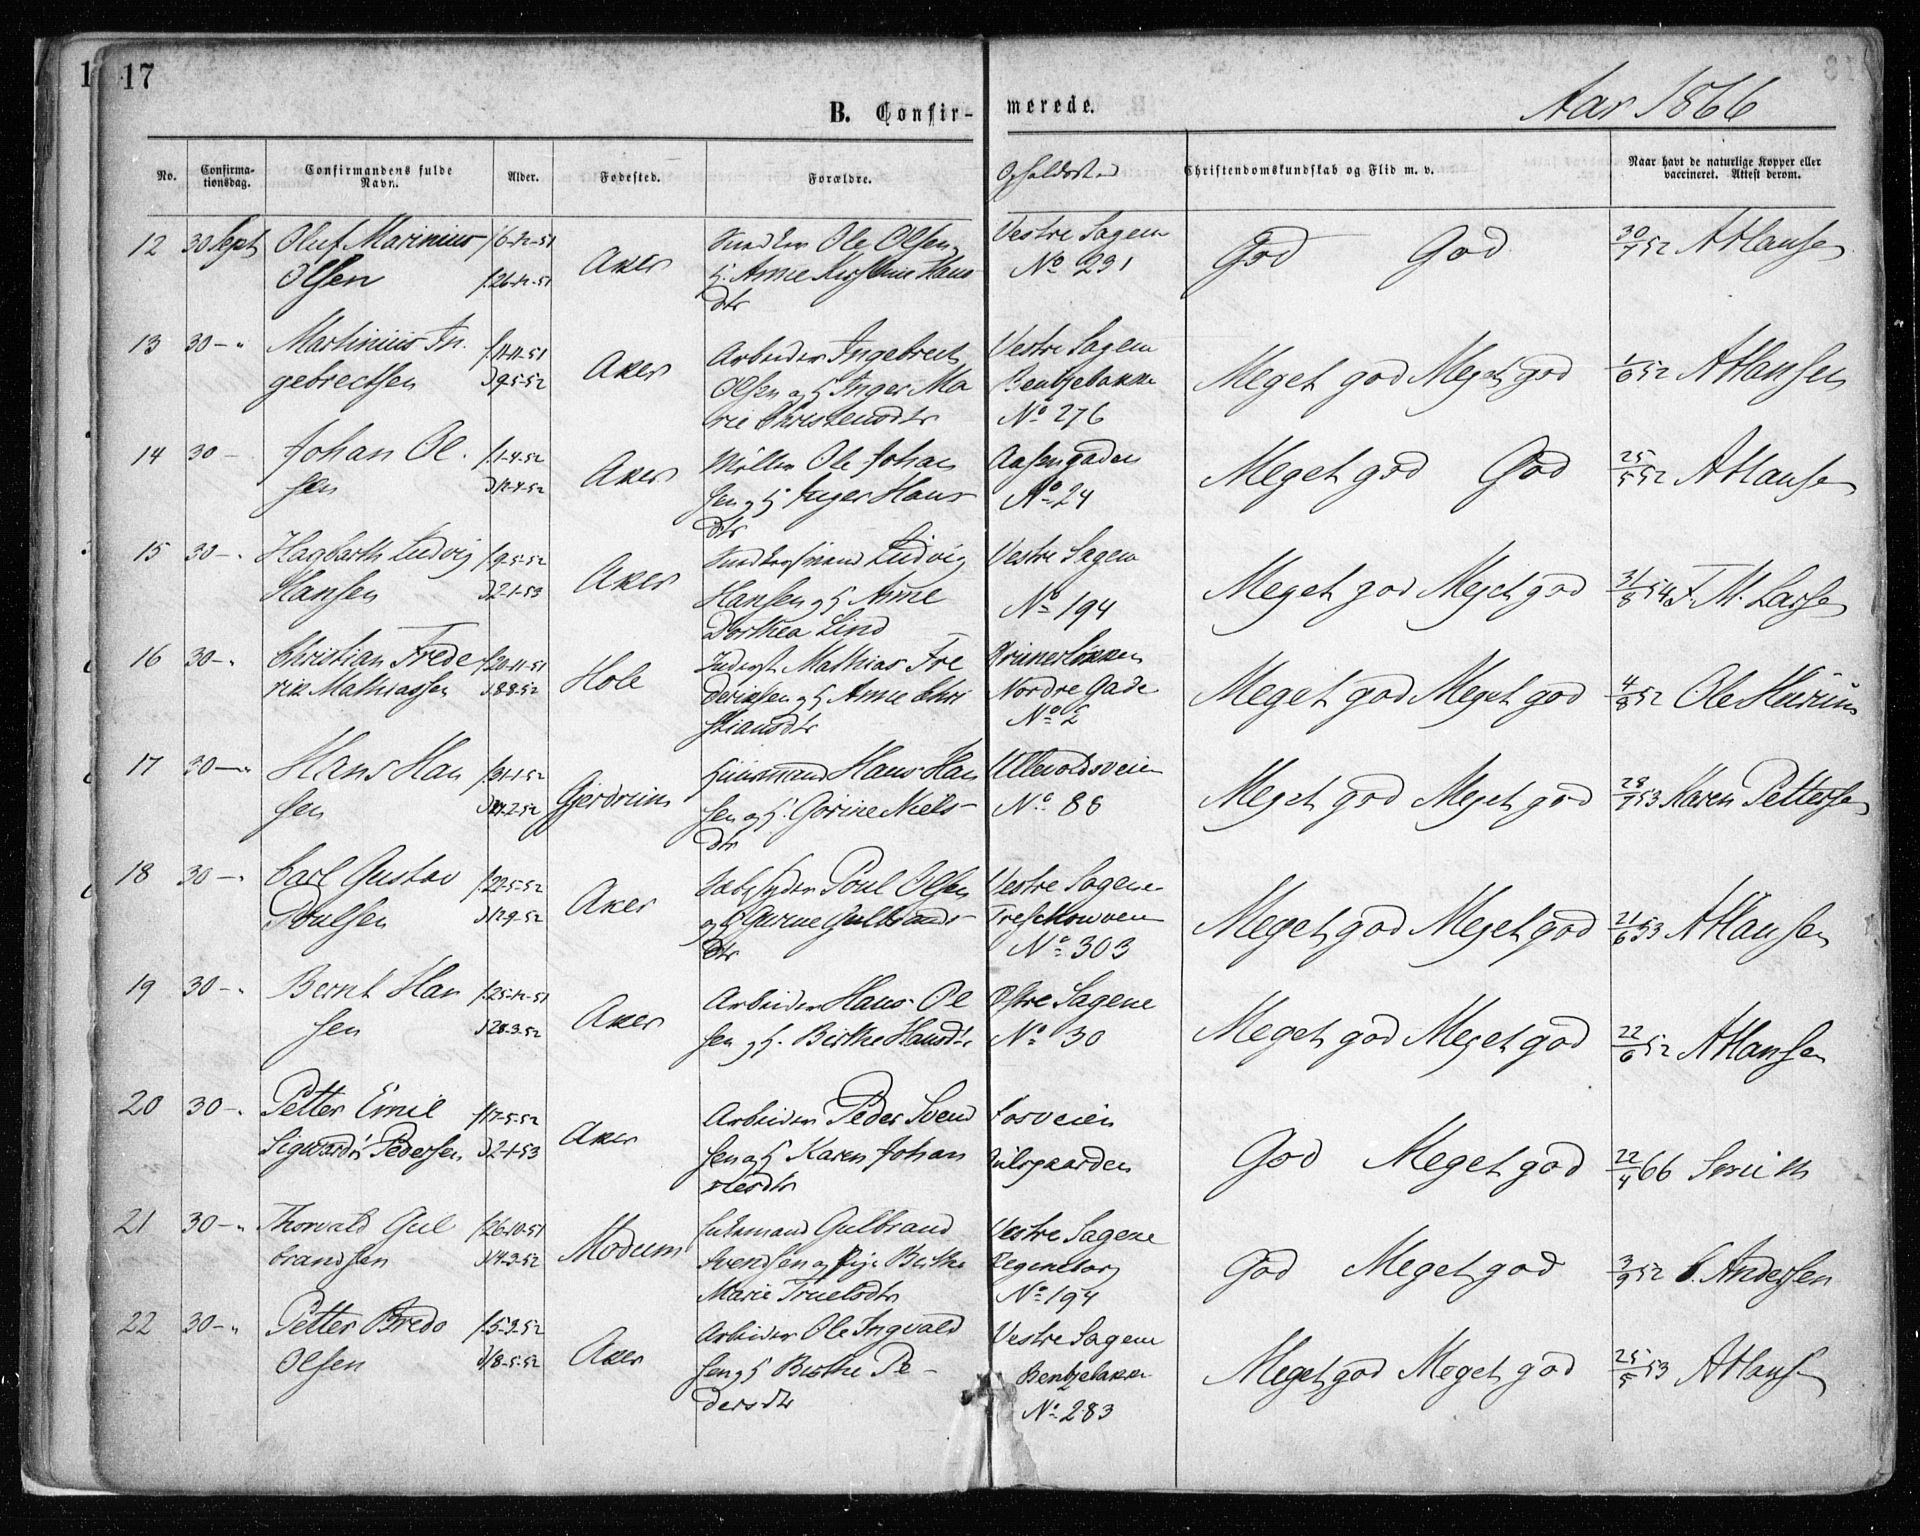 17
B. Confir-
merede.
Aar 1866
No.
Confirma-
tionsdag.
Confirmandens fulde
Navn.
Alder.
Fødested.
Forældre.
Opholdssted
Christendomskundskab og Flid m. v.
Naar havt de naturlige Kopper eller
vaccineret. Attest derom.
12 30 Sept Oluf Marinius
Olsen
f. 26-12-51
Aker
Ole Olsen
Hans
dtr
Vestre Sagene
No 231
God God
30/7 52 A Hansen
13 30 - " Martinius In
gebrectsen
f. 11-11-51
D 9-5-52
Aker
Arbeider Ingebrect
Olsen og H Inger Ma
rie Christensdtr
Vestre Sagene
Bentsebakke
No 276
Meget god Meget god
1/6 52 A Hansen
14 30 - Johan Ol
sen
f. 1-4-52
D 12-4-52
Aker
Møller Ole Johan
sen og H Inger Hans
dtr
Aasengaden
No 24
Meget god God
25/5 52 A Hansen
15 30 - " Hagbarth Ludvig
Hansen
f. 9-5-52
D 2-1-53
Aker
Ludvig
Hansen og H Anne
Dorthea Lind
Vestre Sagene
No 194
Meget god Meget god
31/8 54 F. M. Larsen
16 30 - " Christian Frede
rik Mathiassen
f. 20-11-51
D 8-8-52
Hole
Inderst Mathias Fre
deriksen og H Anne Chri
stiansdtr
Grünerløkken
Nordre Gade
No 2
Meget god Meget god
4/8 52 Ole
17 30 - " Hans Han
sen
f. 31-1-52
Gjerdrum
Huusmand Hans Han
sen og H. Gorine Niels-
dtr
Ullevoldsveien
No 88
Meget god Meget god
28/7 53 Karen Pettersen
18 30 - " Carl Gustav
Poulsen
f. 22-5-52
D 12-9-52
Aker
Poul Olsen
og H Gulbrands-
dtr
Vestre Sagene
Treschowveien
No 303
Meget god Meget god
21/6 53 A Hansen
19 30 - " Bernt Han
sen
f. 25-12-51
D 28-3-52
Aker
Arbeider Hans Ol
sen og H. Birthe Hansdtr
Østre Sagene
No 30
Meget god Meget god
22/6 52 A Hansen
20 30 - " Petter Emil
Sigvardt Pedersen
f. 17-5-52
D 2-1-53
Aker
Arbeider Peder Svend
sen og H Karen Johan
nesdtr
God Meget god
22/4 66 Smith
21 30 - " Thorvald Gul
brandsen
f. 26-10-51
D 14-3-52
Modum
Gulbrand
Svendsen og Pige Birthe
Marie Truelsdtr
Vestre Sagene
Regneborg
No 194
God Meget god
3/9 52 C. Andersen
22 30 - " Petter Bredo
Olsen
f. 5-3-52
D 18-5-52
Aker
Arbeider Ole Ingvald
sen og H Birthe Pe-
dersdtr
Vestre Sagene
Bentsebakken
No 283
Meget god Meget god
25/5 53 A Hansen